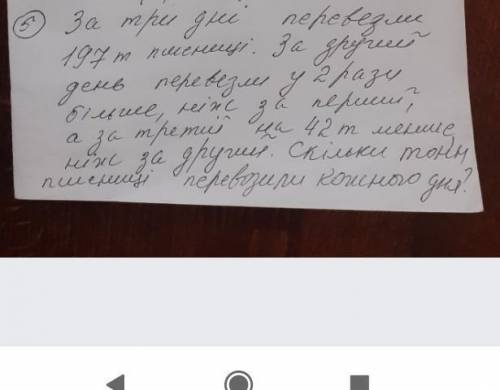 5 За три дні перевезли
197 т пшениці. За другий
день перевезли у 2 рази
більше, ніж за перший,
а за третій на 42 т менше,
ніж за другий. Скільки тонн
пшениці перевозили кожного дня?